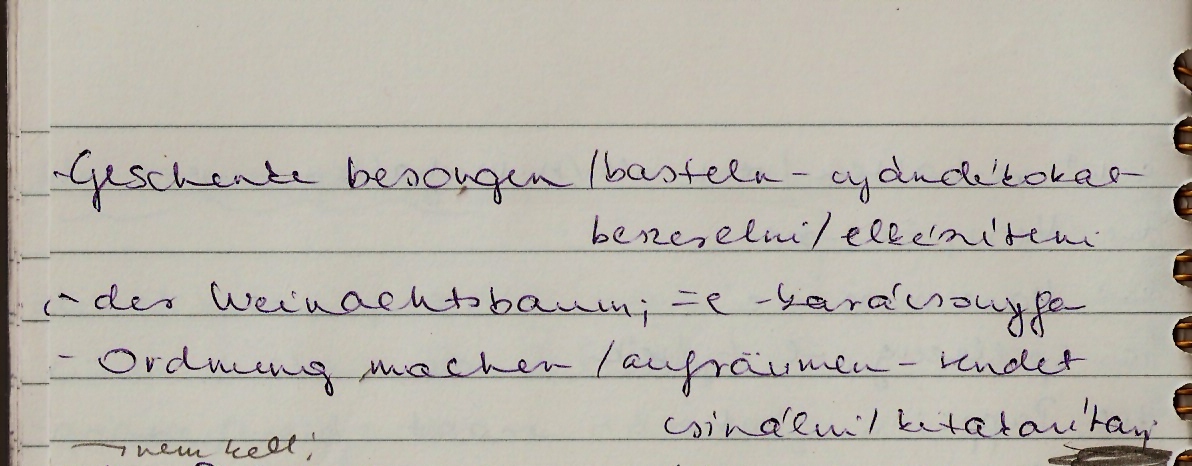 - Geschenke besorgen / basteln - ajándékokat
beszerelni / elkészíteni
- der Weinachtsbaum; =e - karácsonyfa
- Ordnung machen / aufräumen - rendet
csinálni / kitakarítani
→ nem kell!